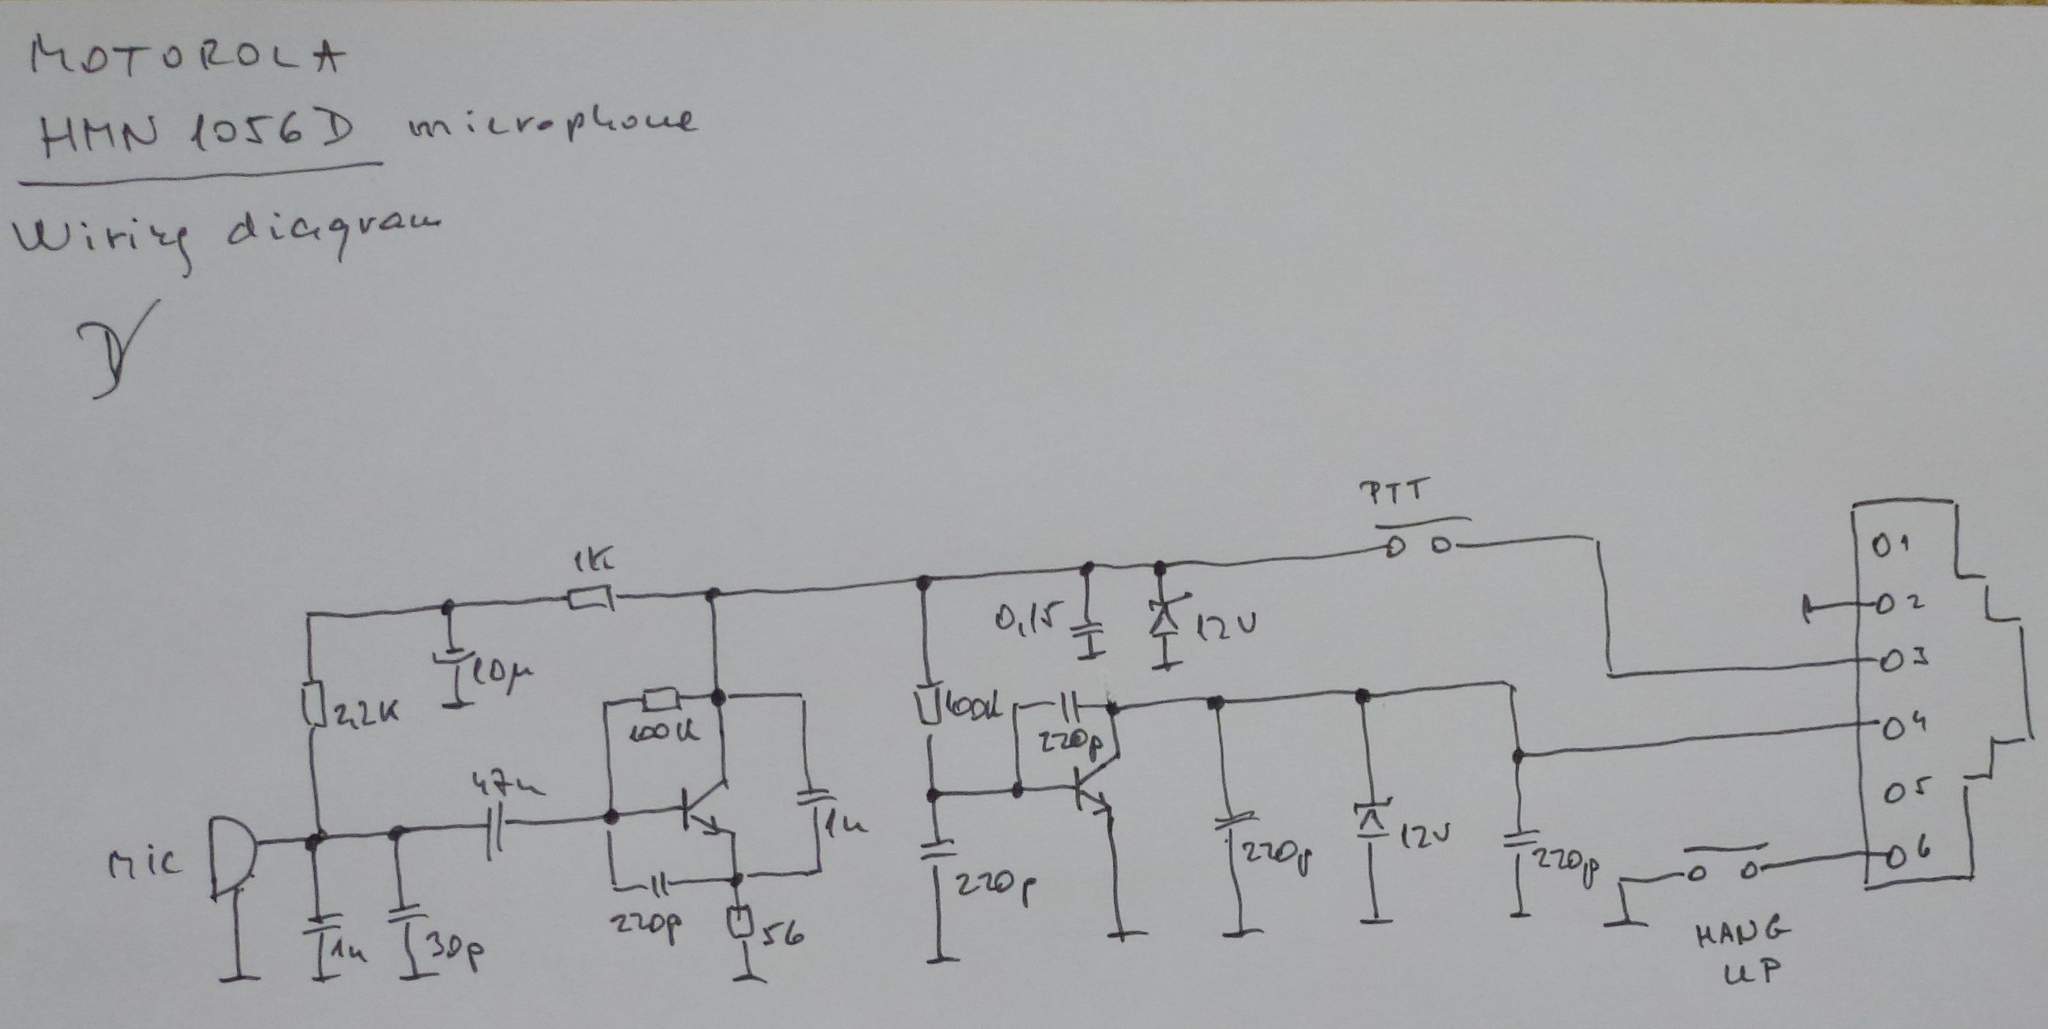 MOTOROLA
HMN 1056D microphone
Wiring diagram
PTT
1K
01
02
0,15
12V
10µ
03
2,2K
100K
100K
220p
04
47n
05
MIC
1n
220p
12V
220p
06
220p
220p
56
1n
30p
HANG
UP